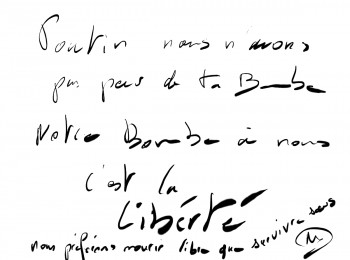 Poutin nous n'avons
pas peur de ta Bombe
Notre Bombe à nous
c'est la
Libérté
nous préférons mourir libre que survivre sans